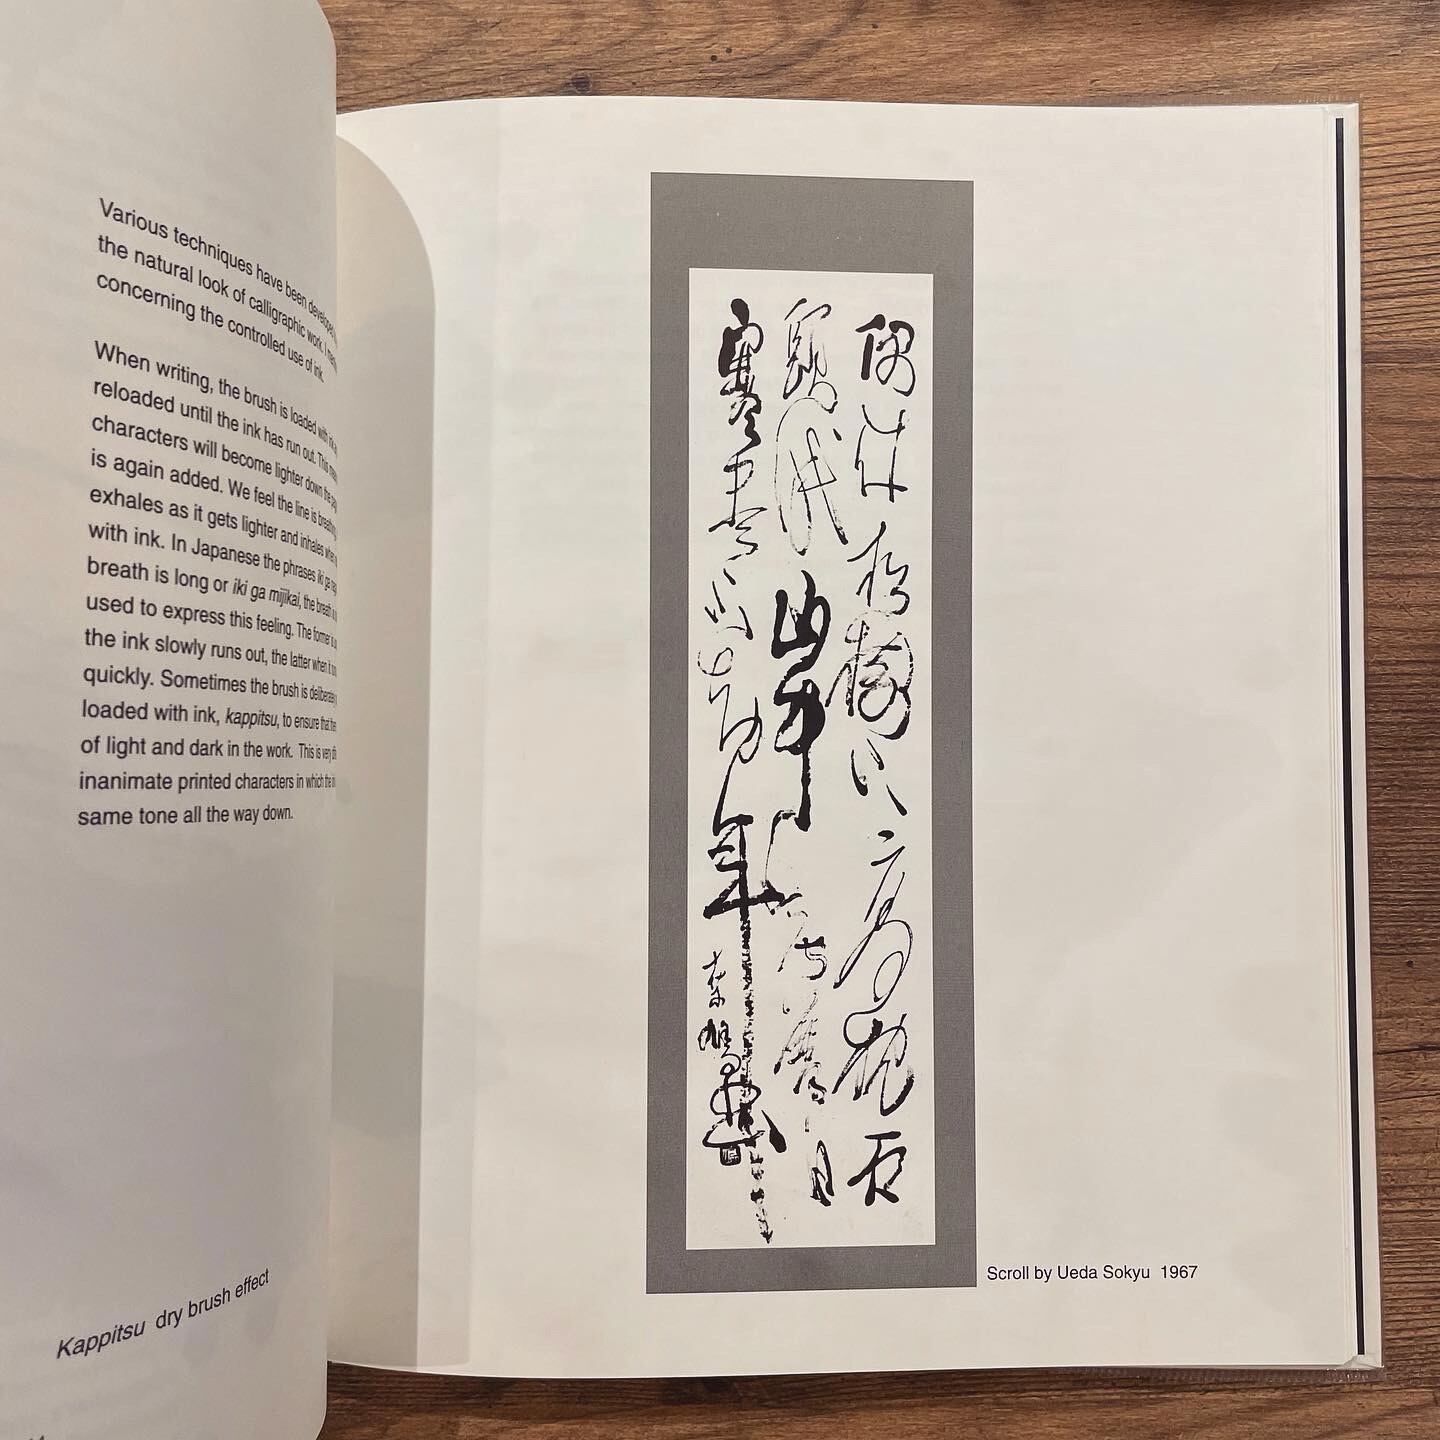 Various techniques have been
the natural look of calligraphic work. I
concerning the controlled use of ink.
When writing, the brush is loaded with
reloaded until the ink has run out. This
characters will become lighter down the
is again added. We feel the line is
exhales as it gets lighter and inhales
with ink. In Japanese the phrases iki ga
breath is long or iki ga mijikai, the breath
used to express this feeling. The former
the ink slowly runs out, the latter when it
quickly. Sometimes the brush is
loaded with ink, kappitsu, to ensure that
of light and dark in the work. This is very
inanimate printed characters in which the
same tone all the way down.
Kappitsu dry brush effect
偶来松樹下高枕石
頭眠山中無暦日
寒盡不知年
Scroll by Ueda Sokyu 1967